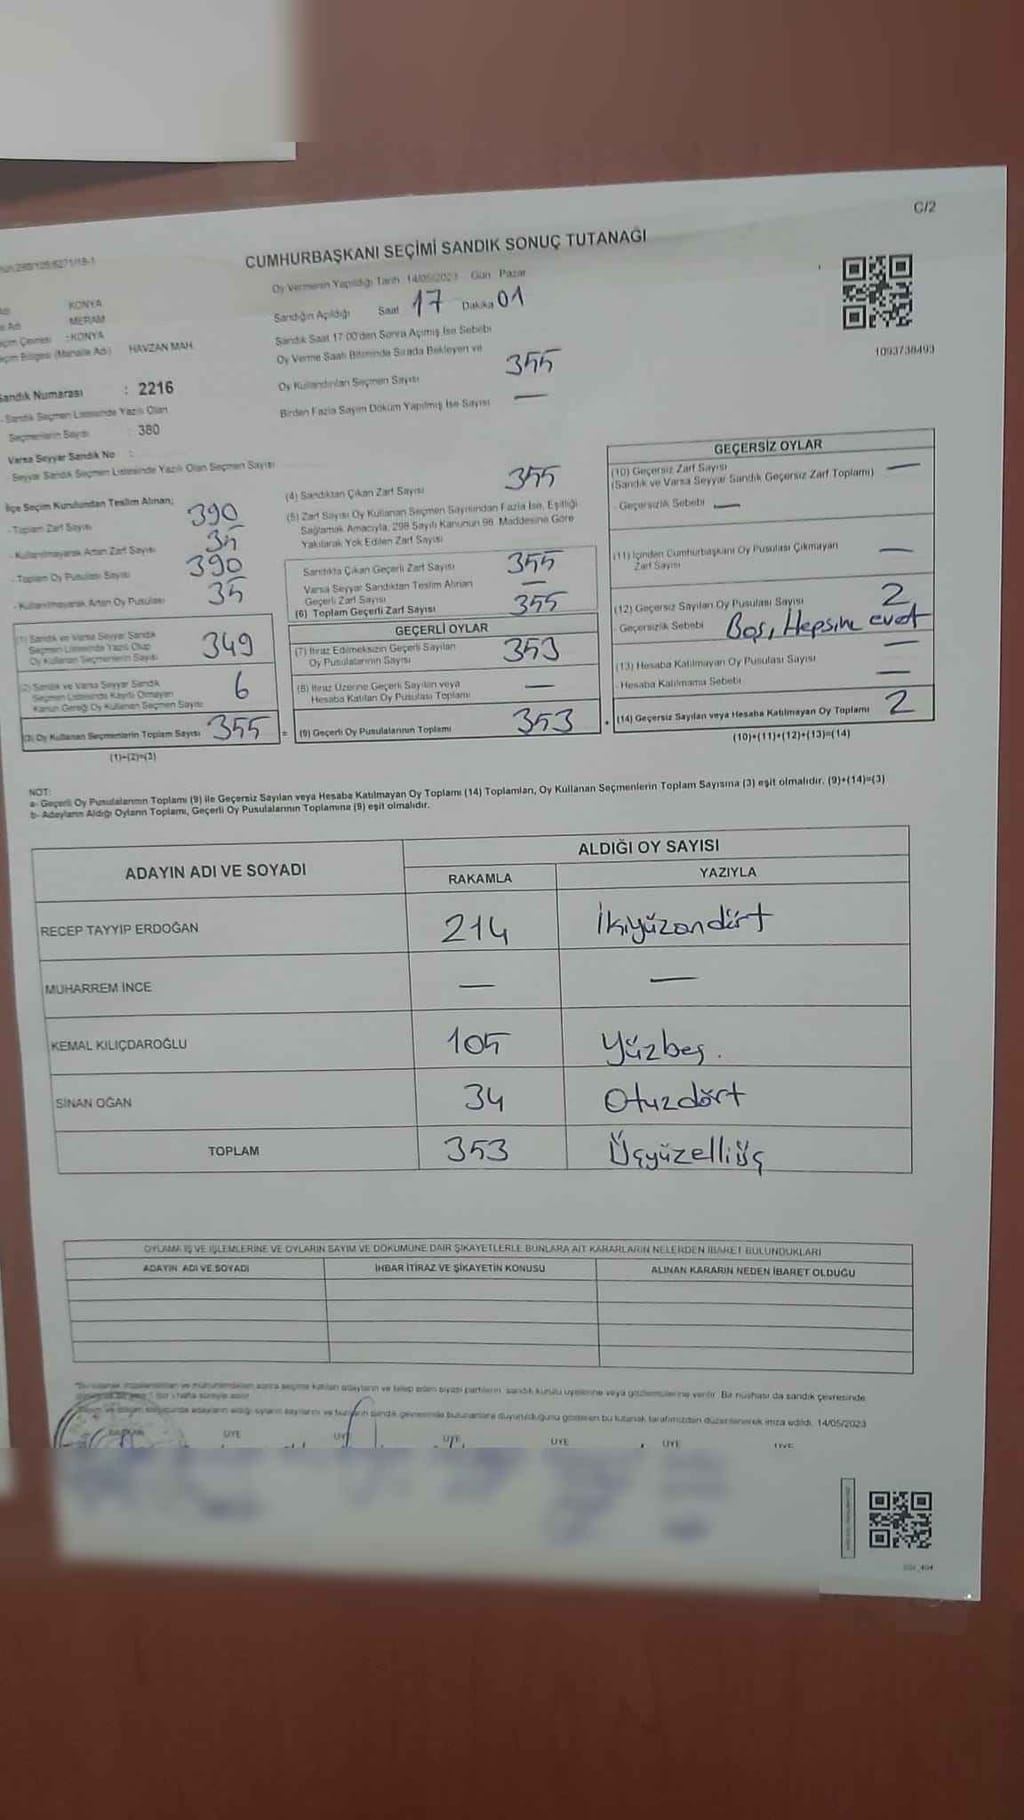 C/2
CUMHURBAŞKANI SEÇİMİ SANDIK SONUÇ TUTANAĞI
Oy Vermenin Yapıldığı Tarih 14/05/2023 Gün Pazar
KONYA
MERAM
KONYA
(Mahalle Adı) HAVZAN MAH.
Sandığın Açıldığı Saat 17 Dakika 01
Sandık Saat 17:00'den Sonra Açılmış İse Sebebi
Oy Verme Saati Bitiminde Sırada Bekleyen ve
Oy Kullandırılan Seçmen Sayısı 355
Birden Fazla Sayım Döküm Yapılmış İse Sayısı —
1093738493
Sandık Numarası : 2216
Sandık Seçmen Listesinde Yazılı Olan
Seçmenlerin Sayısı : 380
Varsa Seyyar Sandık No :
Seyyar Sandık Seçmen Listesinde Yazılı Olan Seçmen Sayısı
İlçe Seçim Kurulundan Teslim Alınan;
- Toplam Zarf Sayısı 390
- Kullanılmayarak Artan Zarf Sayısı 35
- Toplam Oy Pusulası Sayısı 390
- Kullanılmayarak Artan Oy Pusulası 35
(1) Sandık ve Varsa Seyyar Sandık
Seçmen Listesinde Yazılı Olup
Oy Kullanan Seçmenlerin Sayısı 349
(2) Sandık ve Varsa Seyyar Sandık
Seçmen Listesinde Kayıtlı Olmayan
Kanun Gereği Oy Kullanan Seçmen Sayısı 6
(3) Oy Kullanan Seçmenlerin Toplam Sayısı 355
(1)+(2)=(3)
(4) Sandıktan Çıkan Zarf Sayısı 355
(5) Zarf Sayısı Oy Kullanan Seçmen Sayısından Fazla İse, Eşitliği
Sağlamak Amacıyla, 298 Sayılı Kanunun 98. Maddesine Göre
Yakılarak Yok Edilen Zarf Sayısı
Sandıkta Çıkan Geçerli Zarf Sayısı 355
Varsa Seyyar Sandıktan Teslim Alınan
Geçerli Zarf Sayısı —
(6) Toplam Geçerli Zarf Sayısı 355
GEÇERLİ OYLAR
(7) İtiraz Edilmeksizin Geçerli Sayılan
Oy Pusulalarının Sayısı 353
(8) İtiraz Üzerine Geçerli Sayılan veya
Hesaba Katılan Oy Pusulası Toplamı —
= (9) Geçerli Oy Pusulalarının Toplamı 353 +
GEÇERSİZ OYLAR
(10) Geçersiz Zarf Sayısı —
(Sandık ve Varsa Seyyar Sandık Geçersiz Zarf Toplamı)
- Geçersizlik Sebebi —
(11) İçinden Cumhurbaşkanı Oy Pusulası Çıkmayan
Zarf Sayısı —
(12) Geçersiz Sayılan Oy Pusulası Sayısı 2
- Geçersizlik Sebebi Boş, Hepsine evet
(13) Hesaba Katılmayan Oy Pusulası Sayısı —
- Hesaba Katılmama Sebebi —
(14) Geçersiz Sayılan veya Hesaba Katılmayan Oy Toplamı 2
(10)+(11)+(12)+(13)=(14)
NOT:
a- Geçerli Oy Pusulalarının Toplamı (9) ile Geçersiz Sayılan veya Hesaba Katılmayan Oy Toplamı (14) Toplamları, Oy Kullanan Seçmenlerin Toplam Sayısına (3) eşit olmalıdır. (9)+(14)=(3)
b- Adayların Aldığı Oyların Toplamı, Geçerli Oy Pusulalarının Toplamına (9) eşit olmalıdır.
ADAYIN ADI VE SOYADI
ALDIĞI OY SAYISI
RAKAMLA YAZIYLA
RECEP TAYYIP ERDOĞAN 214 İkiyüzondört
MUHARREM İNCE — —
KEMAL KILIÇDAROĞLU 105 Yüzbeş.
SİNAN OĞAN 34 Otuzdört
TOPLAM 353 Üçyüzelliüç
OYLAMA İŞ VE İŞLEMLERİNE VE OYLARIN SAYIM VE DÖKÜMÜNE DAİR ŞİKAYETLERLE BUNLARA AİT KARARLARIN NELERDEN İBARET BULUNDUKLARI
ADAYIN ADI VE SOYADI İHBAR İTİRAZ VE ŞİKAYETİN KONUSU ALINAN KARARIN NEDEN İBARET OLDUĞU
sonra seçime katılan adayların ve talep eden siyasi partilerin sandık kurulu üyelerine veya gözlemcilerine verilir. Bir nüshası da sandık çevresinde
hafta süreyle asılır.
adayların aldığı oyların sayılarını ve bunların sandık çevresinde bulunanlara duyurulduğunu gösteren bu tutanak tarafımızdan düzenlenerek imza edildi. 14/05/2023
BAŞKAN ÜYE ÜYE ÜYE ÜYE ÜYE ÜYE